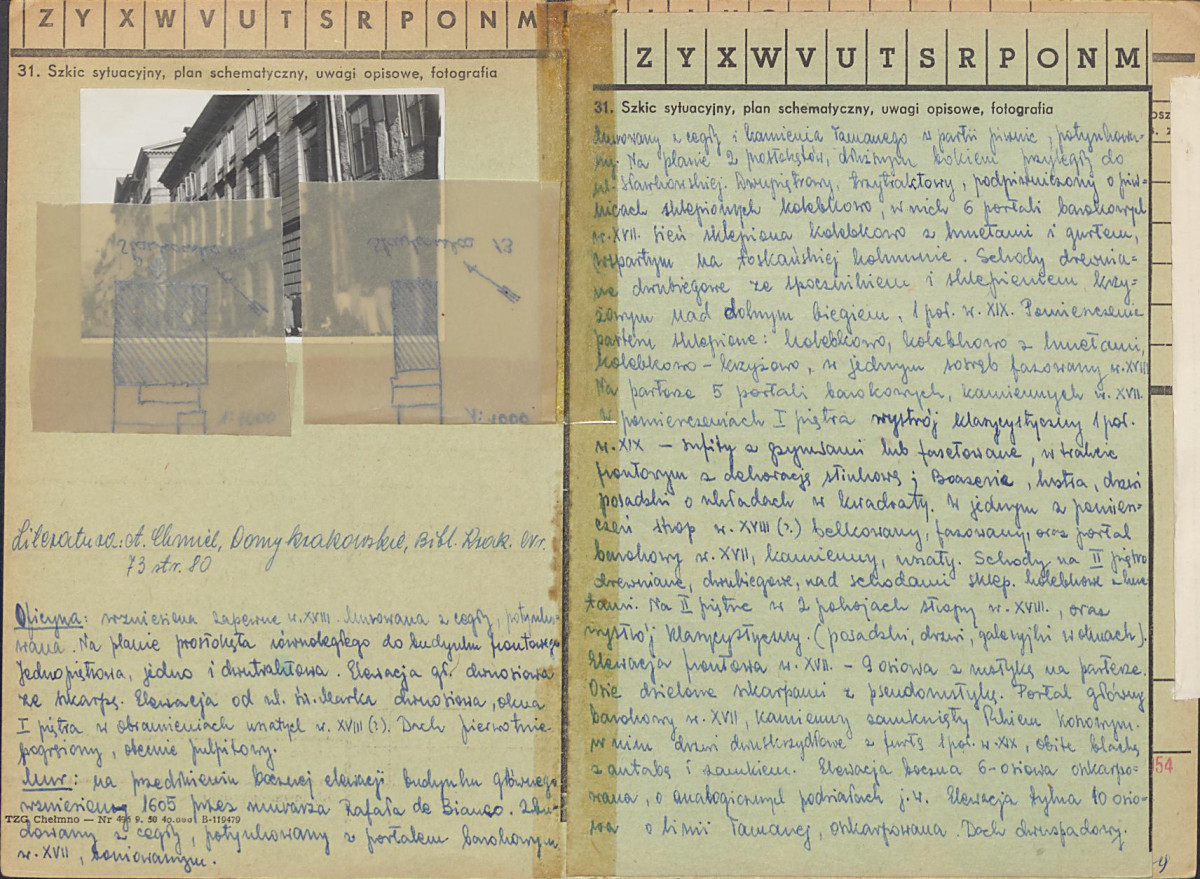 Z Y X W V U T S R P O N M
31. Szkic sytuacyjny, plan schematyczny, uwagi opisowe, fotografia
Sławkowska 13
1:1000
1:1000
Literatura: A. Chmiel, Domy krakowskie, Bibl. Krak. Nr.
73 str. 80
Oficyna: wzniesiona zapewne w. XVIII. Murowana z cegły, potynko-
wana. Na planie prostokąta równoległego do budynku frontowego
Jednopiętrowa, jedno i dwutraktowa. Elewacja gł. dwuosiowa
ze skarpą. Elewacja od ul. św. Marka dwuosiowa, okna
I piętra w obramieniach uszatych w. XVIII (?). Dach pierwotnie
pogrążony, obecnie pulpitowy.
Mur: na przedłużeniu bocznej elewacji budynku głównego
wzniesiony 1605 przez murarza Rafała de Bianco.
dowany z cegły, potynkowany z portalem barokowym
w. XVII, boniowanym.
TZG Chełmno — Nr 495 9. 50 40.000 B-119479
Z Y X W V U T S R P O N M
31. Szkic sytuacyjny, plan schematyczny, uwagi opisowe, fotografia
Murowany z cegły i kamienia łamanego w partii piwnic, potynkowa-
ny. Na planie 2 prostokątów, dłuższym bokiem przyległy do
ul. Sławkowskiej. Dwupiętrowy, trzytraktowy, podpiwniczony o piw-
nicach sklepionych kolebkowo, w nich 6 portali barokowych
w. XVII. Sień sklepiona kolebkowo z lunetami i gurtem,
wspartym na toskańskiej kolumnie. Schody drewnia-
ne dwubiegowe ze spocznikiem i sklepieniem krzy-
żowym nad dolnym biegiem, 1 poł. w. XIX. Pomieszczenie
parteru sklepione: kolebkowo, kolebkowo z lunetami,
kolebkowo-krzyżowo, w jednym sosręb fazowany w. XVII
Na parterze 5 portali barokowych, kamiennych w. XVII.
W pomieszczeniach I piętra wystrój klasycystyczny 1 poł.
w. XIX — sufity z gzymsami lub fasetowane, w trakcie
frontowym z dekoracją stiukową; Boazerie, lustra, drzwi
posadzki o układach w kwadraty. W jednym z pomiesz-
czeń strop w. XVIII (?) belkowany, fazowany, oraz portal
barokowy w. XVII, kamienny, uszaty. Schody na II piętro
drewniane, dwubiegowe, nad schodami sklep. kolebkowe z lune
tami. Na II piętrze w 2 pokojach stropy w. XVIII., oraz
wystrój klasycystyczny. (posadzki, drzwi, galeryjki w oknach).
Elewacja frontowa w. XVII. — 9 osiowa z rustyką na parterze.
Osie dzielone skarpami z pseudorustyką. Portal główny
barokowy w. XVII, kamienny zamknięty łukiem koszowym.
w nim drzwi dwuskrzydłowe z furtą 1 poł. w. XIX, obite blachą
z antabą i zamkiem. Elewacja boczna 6-osiowa oskarpo-
wana, o analogicznych podziałach j.w. Elewacja tylna 10 osio-
wa o linii łamanej, oskarpowana. Dach dwuspadowy.
54